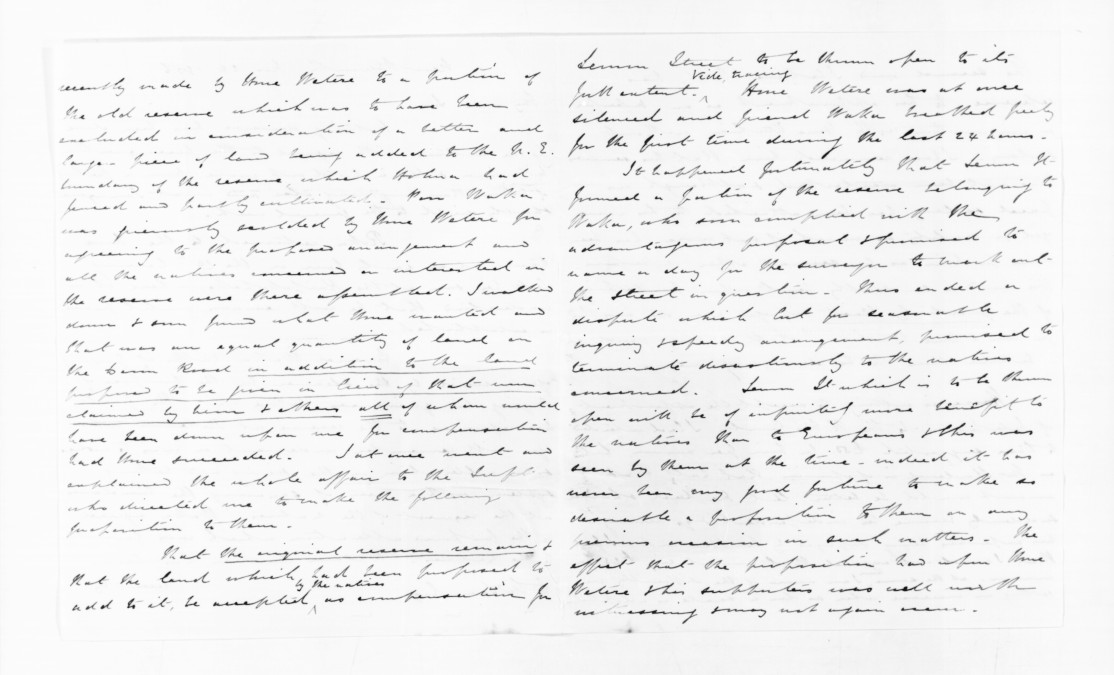 recently made by Hone Wetere to a portion of
the old reserve which was to have been
excluded in consideration of a better and
larger piece of land being added to the N. E.
boundary of the reserve which Hohua had
fenced and partly cultivated. Poor Waka
was furiously scolded by Hone Wetere for
agreeing to the proposed arrangement and
all the natives concerned or interested in
the reserve were there assembled. I walked
down & soon found what Hone wanted and
that was an equal quantity of land on
the Town Road in addition to the land
proposed to be given in lieu of that now
claimed by him & others all of whom would
have been down upon me for compensation
had Hone succeeded. I at once went and
explained the whole affair to the Supt
who directed me to make the following
proposition to them.
That the original reserve remain &
that the land which had been proposed to
add to it, be accepted by the natives as compensation for
Lemon Street to be thrown open to its
full extent. Vide tracing Hone Wetere was at once
silenced and friend Waka breathed freely
for the first time during the last 24 hours.
It happened fortunately that Lemon St
formed a portion of the reserve belonging to
Waka, who soon complied with the
advantageous proposal & promised to
name a day for the surveyor to mark out
the street in question. Thus ended a
dispute which but for seasonable
inquiry & speedy arrangement, promised to
terminate disastrously to the natives
concerned. Lemon St which is to be thrown
open will be of infinitely more benefit to
the natives than to Europeans & this was
seen by them at the time - indeed it has
never been my good fortune to make so
desirable a proposition to them on any
previous occasion in such matters. The
effect that the proposition had upon Hone
Wetere & his supporters was well worth
witnessing & may not again occur.